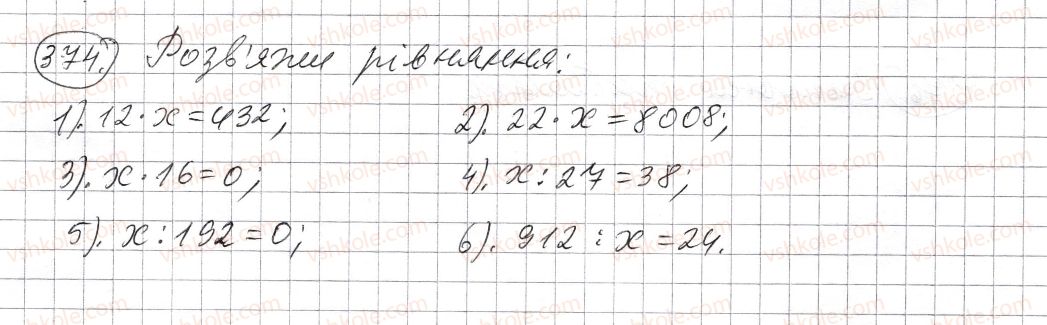 374. Розв'яжи рівняння:
1). 12 · x = 432; 2). 22 · x = 8008;
3). x · 16 = 0; 4). x : 27 = 38;
5). x : 192 = 0; 6). 912 : x = 24.